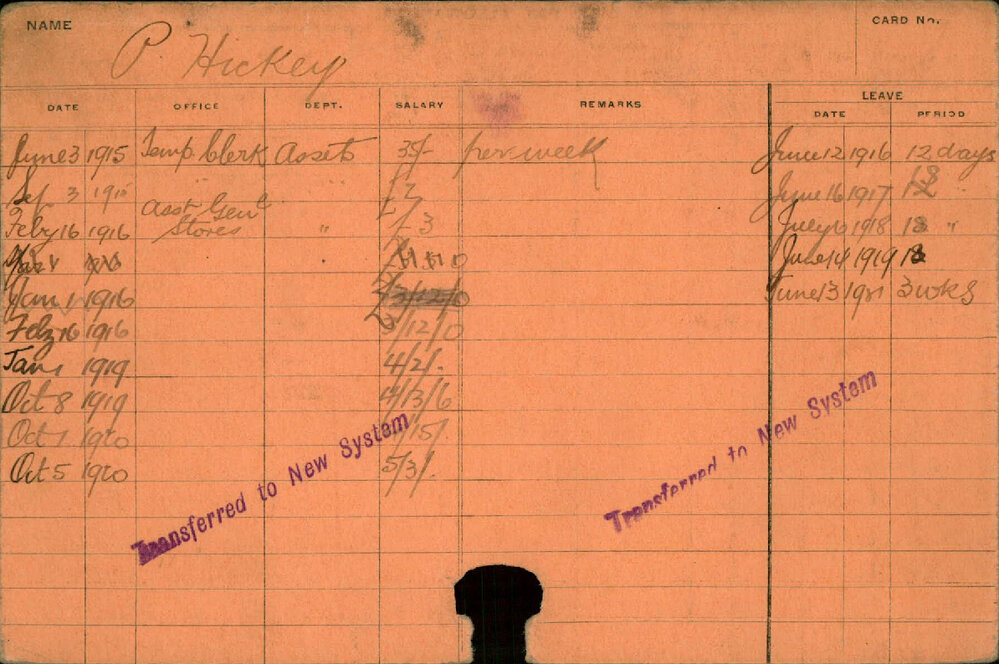 NAME
CARD No.
P. Hickey
DATE OFFICE DEPT. SALARY REMARKS LEAVE
DATE PERIOD
June 3 1915 Temp. Clerk Assets 35/- per week June 12 1916 12 days
Sep 3 1915 £2 June 16 1917 18 "
Feby 16 1916 Asst Genl Stores " £3 July 10 1918 18 "
June 14 1919 18
Jan 1 1916 3/12/0 June 13 1921 3 wks
Feby 16 1916 3/12/0
Jan 1 1919 4/2/-
Oct 8 1919 4/13/6
Oct 1 1920 /15/
Oct 5 1920 5/3/-
Transferred to New System
Transferred to New System